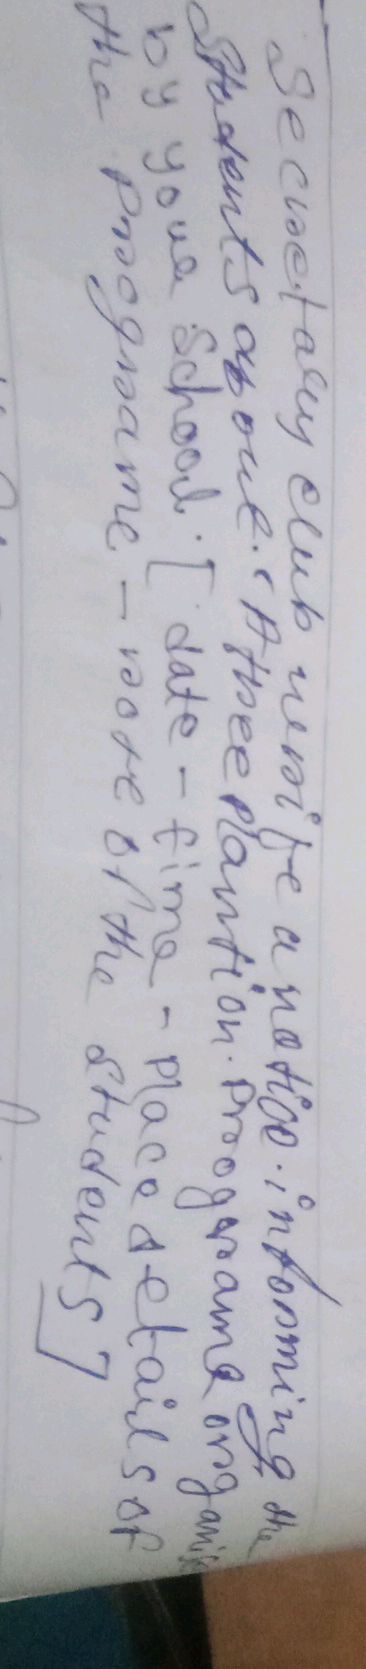 Secretary club write a notice. informing the
students about. "A tree plantion. Programe organise
by your School. [ date - time - place details of
the Programe - role of the students ]